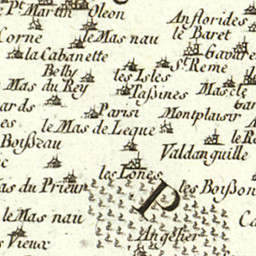 Pt Martin Oleon
Anflorides
Corne
le Mas nau
le Baret
la Cabanette
Gavare
Belly
les Isles
St Reme
Mas du Rey
Tassines
Mas
ards
Parisi
Montplaisir
es
le Mas de Leque
le R
Boisseau
Valdanguille
c
les Lones
as du Prieur
les Boisson
P
le Mas nau
Ca
Angelier
s Vieux